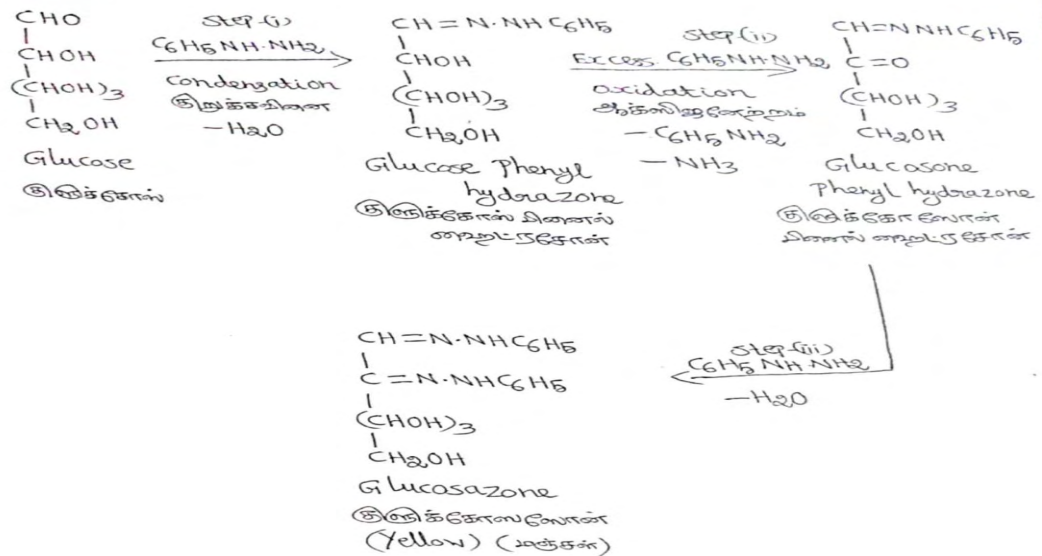 CHO
|
CHOH
|
(CHOH)3
|
CH2OH
Glucose
குளுக்கோஸ்
Step-(i)
C6H5NH·NH2
Condensation
குறுக்கவினை
-H2O
CH=N·NHC6H5
|
CHOH
|
(CHOH)3
|
CH2OH
Glucose Phenyl
hydrazone
குளுக்கோஸ் பினைல்
ஹைட்ரசோன்
Step-(ii)
Excess. C6H5NH·NH2
oxidation
ஆக்ஸிஜனேற்றம்
-C6H5NH2
-NH3
CH=NNHC6H5
|
C=O
|
(CHOH)3
|
CH2OH
Glucosone
Phenyl hydrazone
குளுக்கோஸோன்
பினைல் ஹைட்ரசோன்
Step-(iii)
C6H5NH·NH2
-H2O
CH=N·NHC6H5
|
C=N·NHC6H5
|
(CHOH)3
|
CH2OH
Glucosazone
குளுக்கோஸஸோன்
(Yellow) (மஞ்சள்)